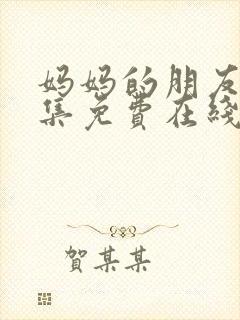 妈妈的朋友
集免费在线
贺某某